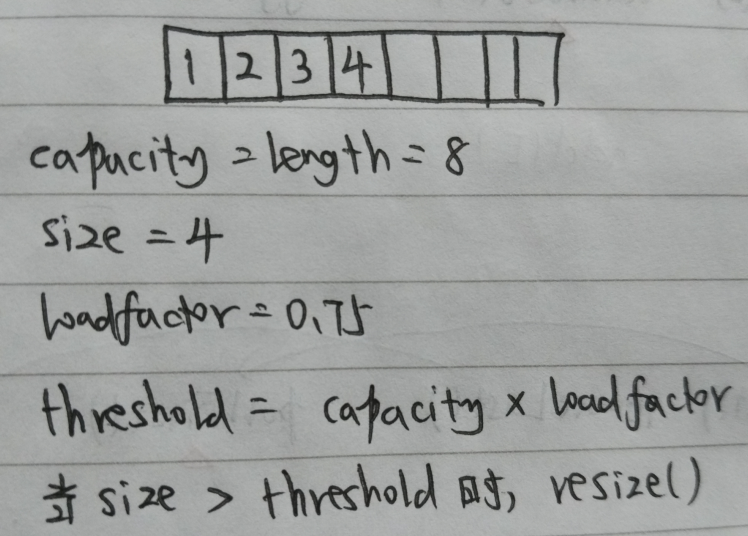 1 2 3 4
capacity = length = 8
size = 4
loadfactor = 0.75
threshold = capacity × loadfactor
当 size > threshold 时, resize()